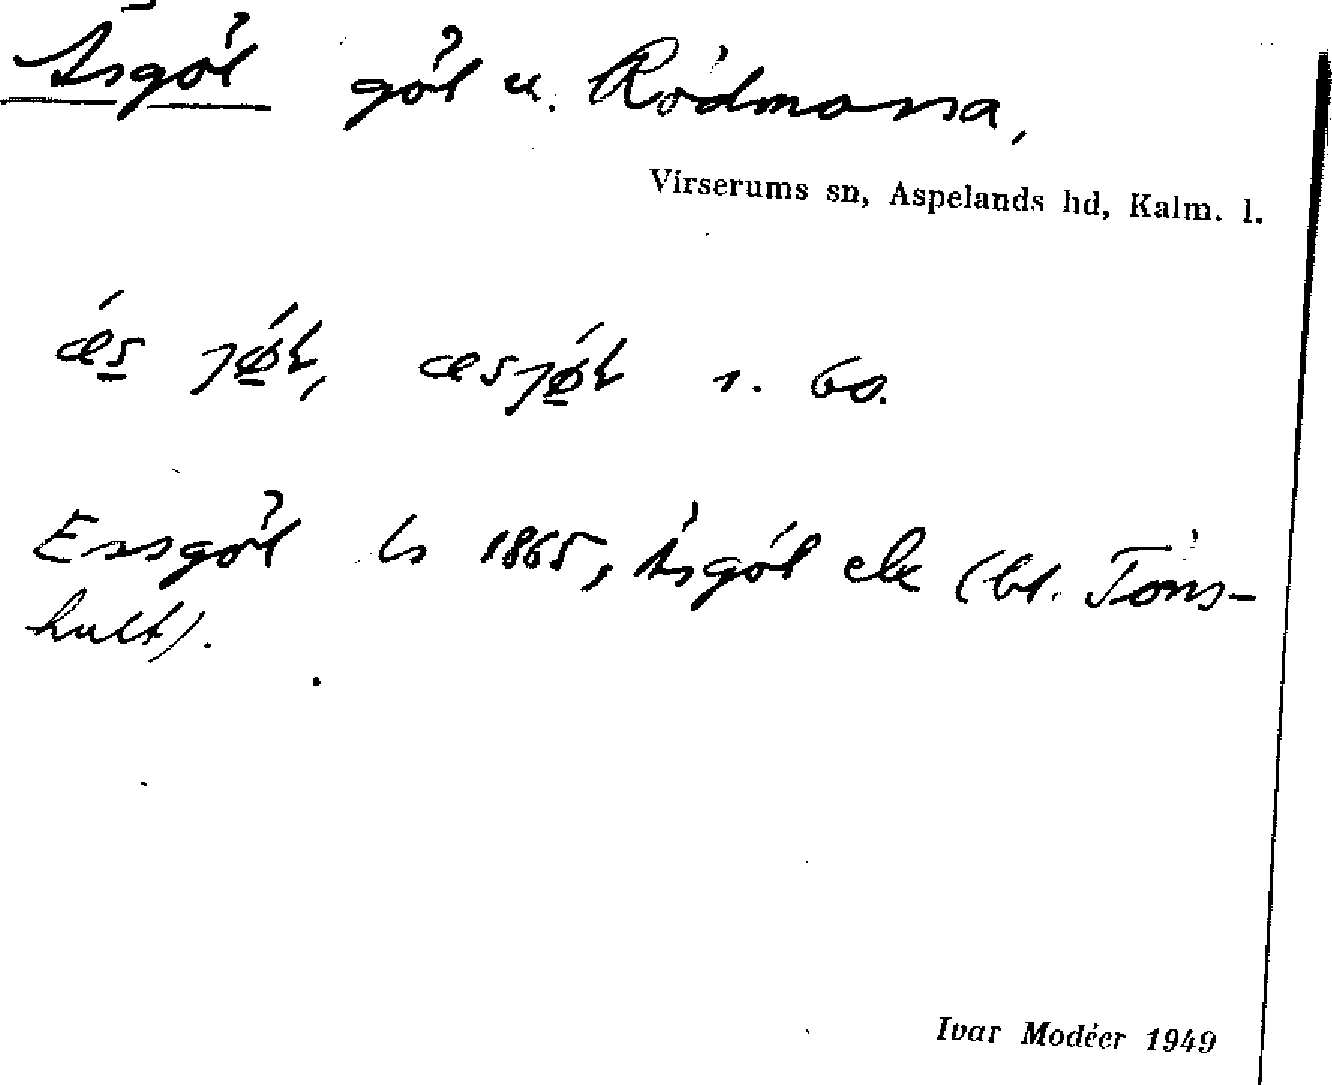 Äsgöl göl u. Rödmossa,
Virserums sn, Aspelands hd, Kalm. l.
Essgöl ls 1865, Äsgöl ek (bl. Töns-
hult).
Ivar Modéer 1949